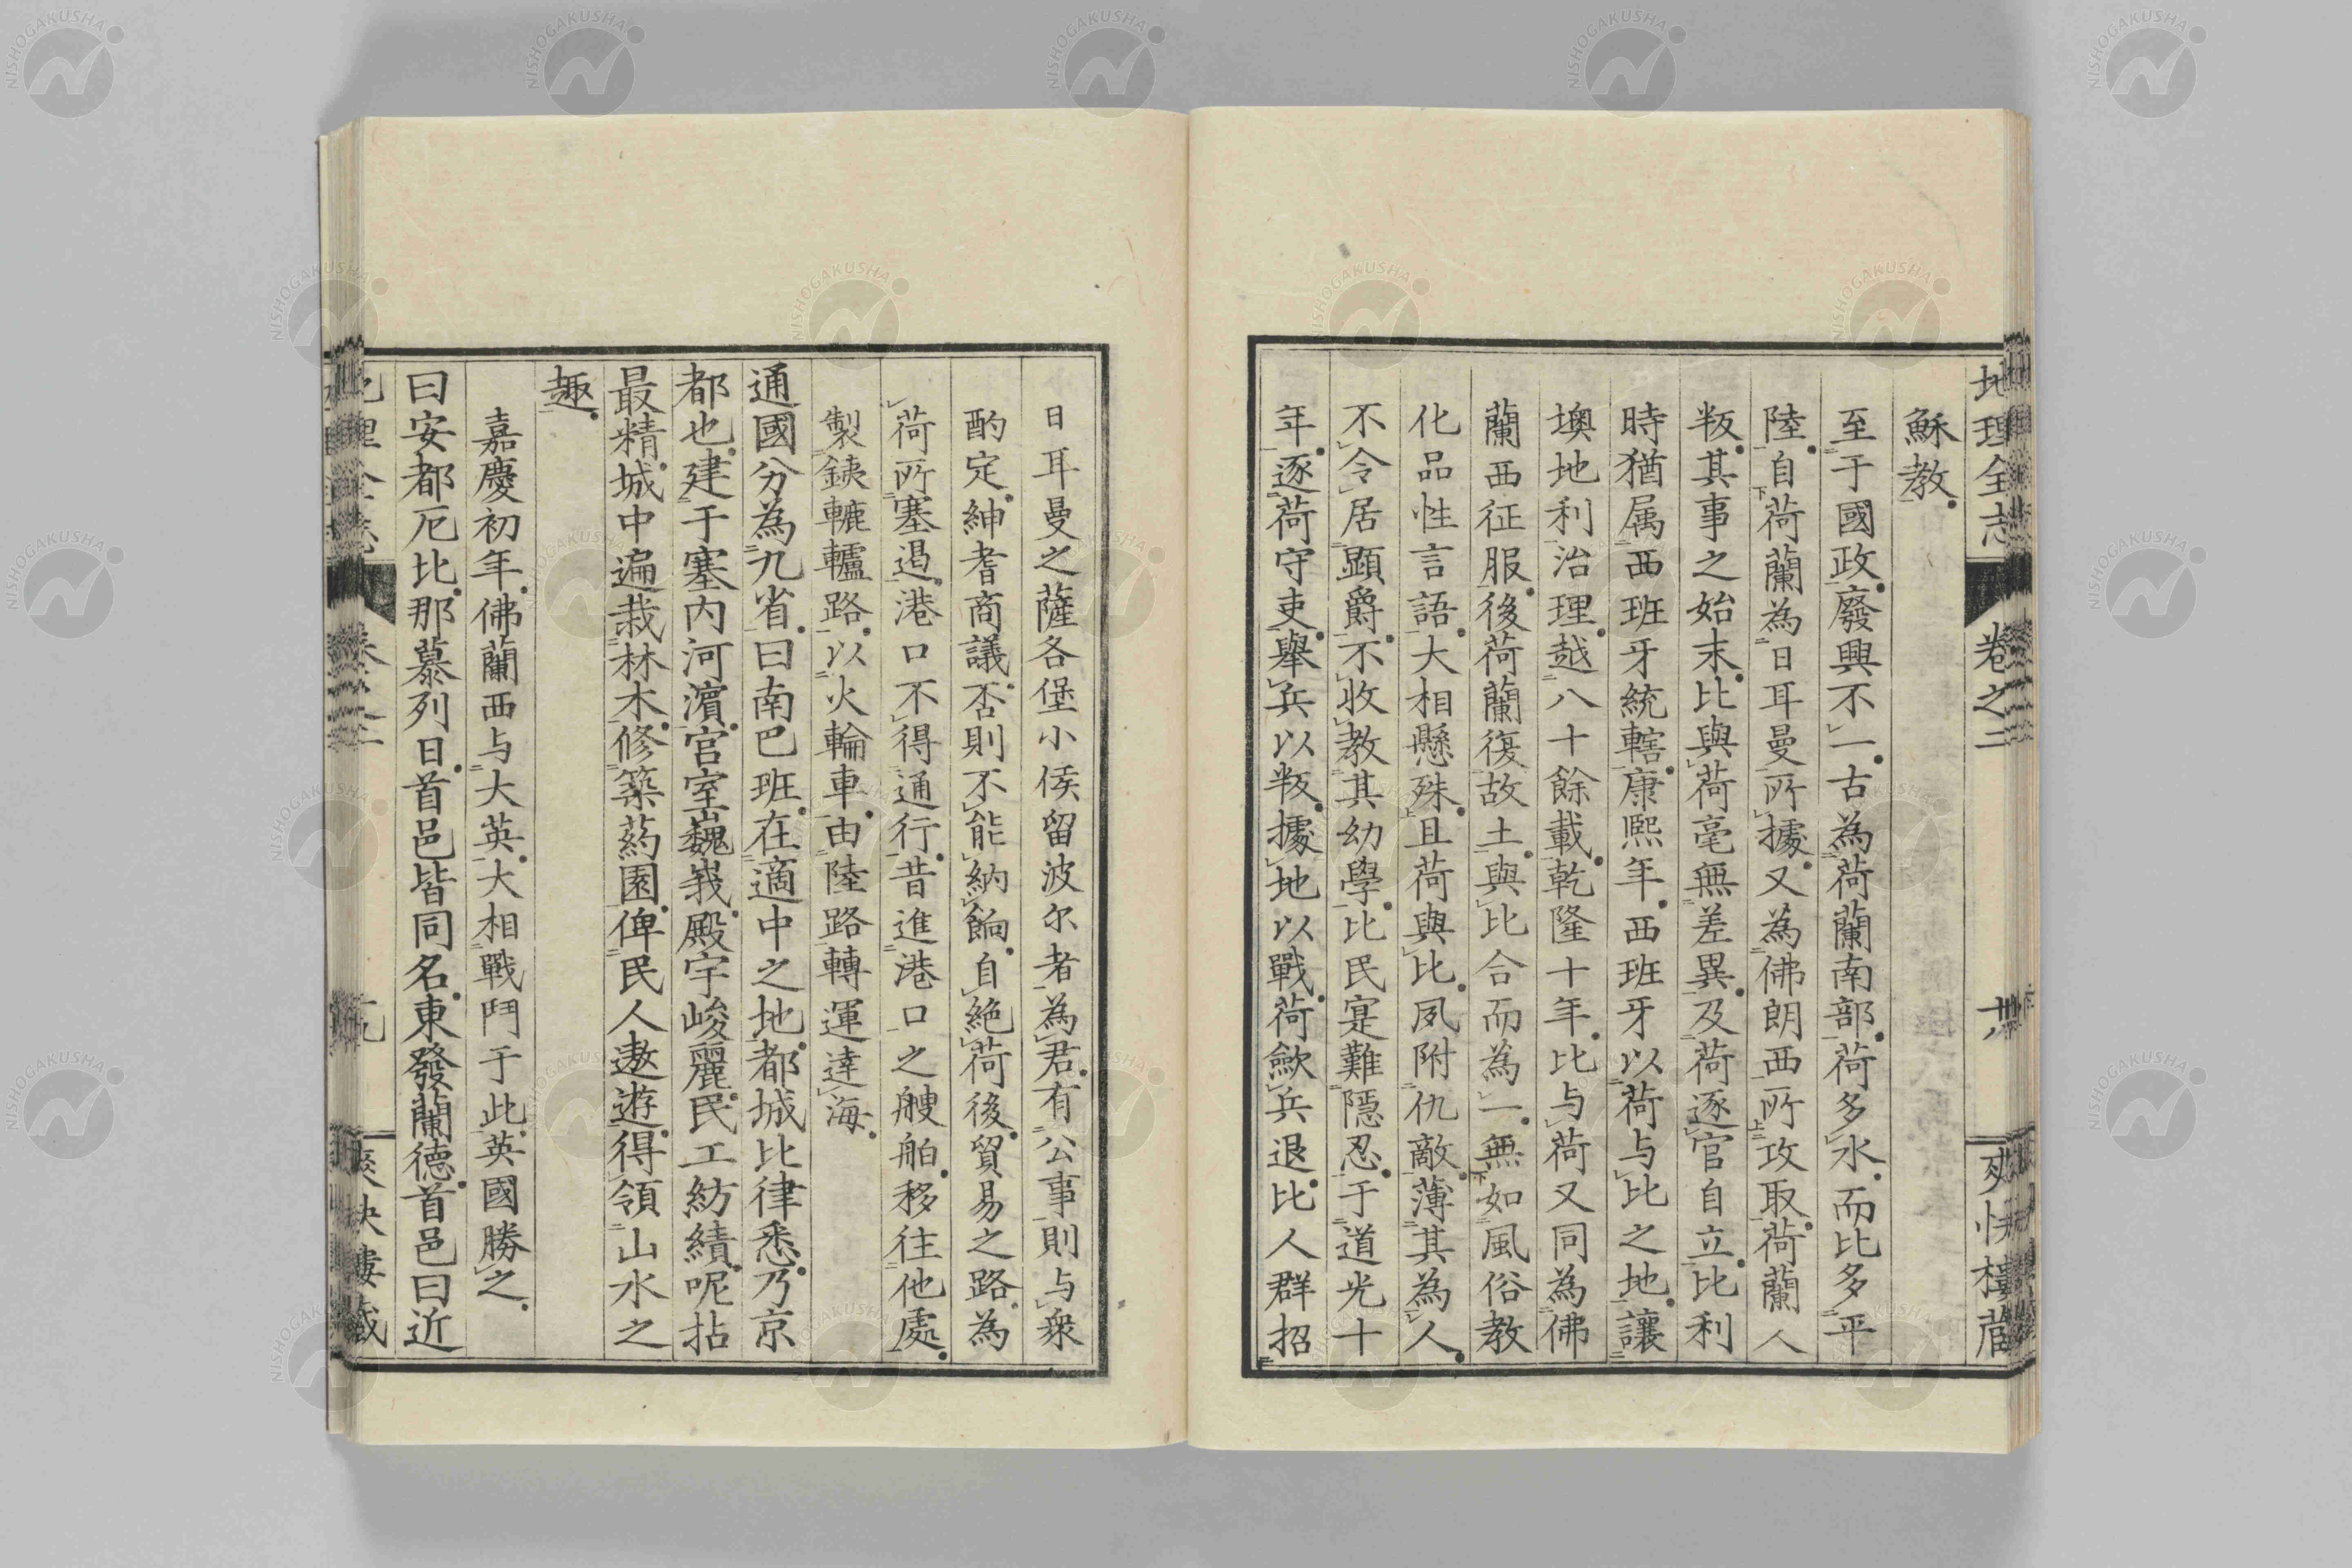 地理全志 卷之二 爽快樓藏
穌教。
至于國政。廢興不一。古為荷蘭南部。荷多水。而比多平
陸。自荷蘭為日耳曼所據。又為佛朗西所攻取。荷蘭人
叛。其事之始末。比與荷毫無差異。及荷逐官自立。比利
時猶属西班牙統轄。康熙年。西班牙以荷与比之地。讓
墺地利治理。越八十餘載。乾隆十年。比与荷又同為佛
蘭西征服。後荷蘭復故土。與比合而為一。無如風俗教
化品性言語。大相懸殊。且荷與比。夙附仇敵。薄其為人。
不令居顕爵。不收教其幼學。比民寔難隱忍。于道光十
年。逐荷守吏。舉兵以叛。據地以戰。荷歛兵退。比人群招
日耳曼之薩各堡小侯留波尔者。為君。有公事。則与衆
酌定。紳耆商議。否則不能納餉。自絶荷後。貿易之路。為
荷所塞遏。港口不得通行。昔進港口之艘舶。移往他處。
製鉄轆轤路。以火輪車。由陸路轉運達海。
通國分為九省。曰南巴班。在適中之地。都城比律悉。乃京
都也。建于塞内河濵。官室巍峩。殿宇峻麗。民工紡績。呢拈
最精。城中遍栽林木。修築葯園。俾民人遨遊。得領山水之
趣。
嘉慶初年。佛蘭西与大英。大相戰鬥于此。英國勝之。
曰安都厄比。那慕列日。首邑皆同名。東發蘭德。首邑曰近
NISHOGAKUSHA